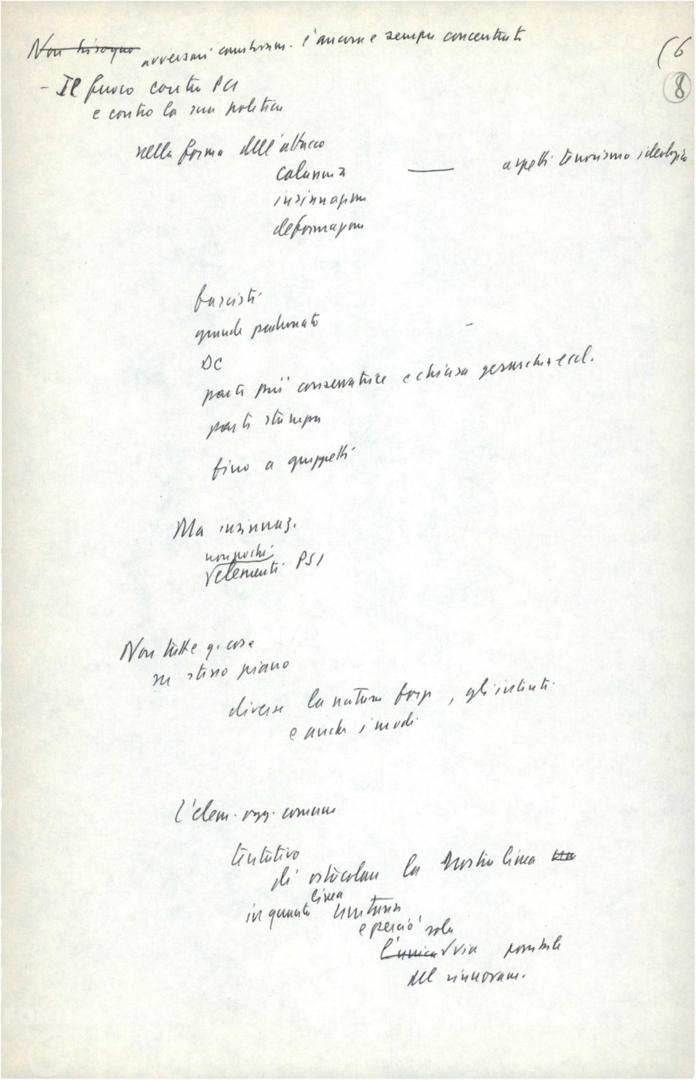 Non bisogna avversari l'ancora e sempre concentrato
(6
8
- Il fuoco contro PCI
e contro la sua politica
nella forma dell'attacco
calunnia — aspetti terrorismo ideologico
insinuazioni
deformazioni
fascisti
grande padronato
DC
parte più conservatrice e chiusa gerarchia eccl.
parte stampa
fino a gruppetti
Ma insinuaz.
non pochi
elementi PSI
Non tutte q. cose
su stesso piano
diverse la natura forze, gli intenti
e anche i modi
L'elem. ogg. comune
tentativo
di ostacolare la nostra linea
linea
in quanto unitaria
e perciò sola
l'unica via possibile
del rinnovam.